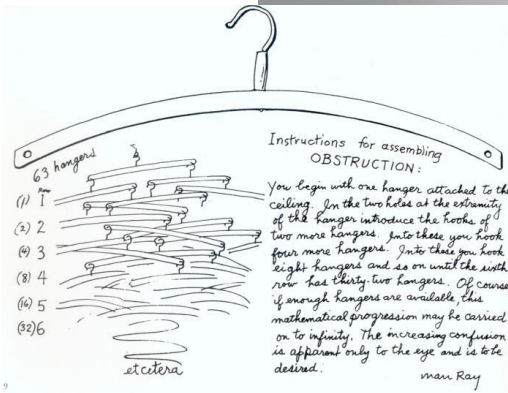 63 hangers
Row
(1) 1
(2) 2
(4) 3
(8) 4
(16) 5
(32) 6
etcetera
Instructions for assembling
OBSTRUCTION:
You begin with one hanger attached to the
ceiling. In the two holes at the extremity
of the hanger introduce the hooks of
two more hangers. Into these you hook
four more hangers. Into these you hook
eight hangers and so on until the sixth
row has thirty-two hangers. Of course
if enough hangers are available, this
mathematical progression may be carried
on to infinity. The increasing confusion
is apparent only to the eye and is to be
desired.
Man Ray
9